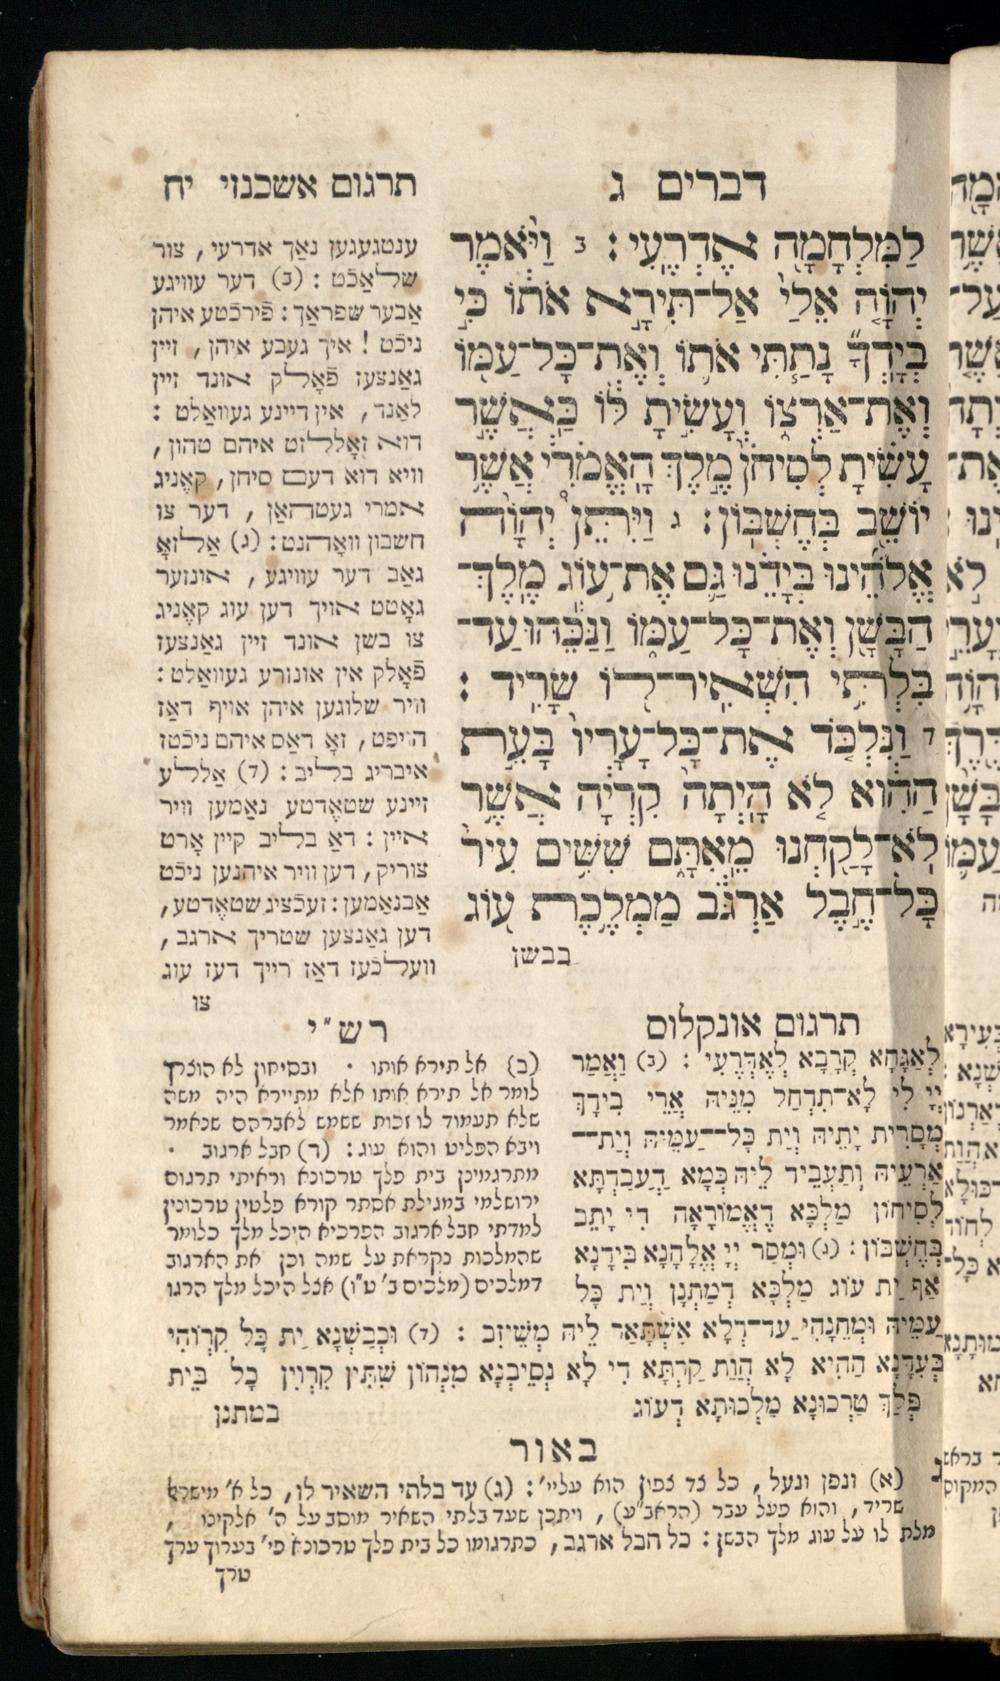 דברים ג
תרגום אשכנזי יח
לַמִּלְחָמָה אֶדְרֶעִי : ב וַיֹּאמֶר
יְהוָה אֵלַי אַל־תִּירָא אֹתוֹ כִּי
בְיָדְךָ נָתַתִּי אֹתוֹ וְאֶת־כָּל־עַמּוֹ
וְאֶת־אַרְצוֹ וְעָשִׂיתָ לּוֹ כַּאֲשֶׁר
עָשִׂיתָ לְסִיחֹן מֶלֶךְ הָאֱמֹרִי אֲשֶׁר
יוֹשֵׁב בְּחֶשְׁבּוֹן : ג וַיִּתֵּן יְהוָה
אֱלֹהֵינוּ בְּיָדֵנוּ גַּם אֶת־עוֹג מֶלֶךְ־
הַבָּשָׁן וְאֶת־כָּל־עַמּוֹ וַנַּכֵּהוּ עַד־
בִּלְתִּי הִשְׁאִיר־לוֹ שָׂרִיד :
ד וַנִּלְכֹּד אֶת־כָּל־עָרָיו בָּעֵת
הַהִוא לֹא הָיְתָה קִרְיָה אֲשֶׁר
לֹא־לָקַחְנוּ מֵאִתָּם שִׁשִּׁים עִיר
כָּל־חֶבֶל אַרְגֹּב מַמְלֶכֶת עוֹג
בבשן
ענטגעגען נאַך אדרעי, צור
שלאַכֿט : (ב) דער עוויגע
אַבער שפראַך : פֿירכֿטע איהן
ניכֿט ! איך געבע איהן, זיין
גאַנצעז פֿאָלק אונד זיין
לאַנד, אין דיינע געוואַלט :
דוא זאָללזט איהם טהון,
וויא דוא דעם סיחן, קאֶניג
אמרי געטהאַן, דער צו
חשבון וואָהנט : (ג) אַלזאָ
גאַב דער עוויגע, אונזער
גאָטט אויך דען עוג קאֶניג
צו בשן אונד זיין גאַנצעז
פֿאָלק אין אונזרע געוואַלט :
וויר שלוגען איהן אויף דאַז
הויפט, זאָ דאַס איהם ניכֿטז
איבריג בליב : (ד) אַללע
זיינע שטאֶדטע נאַמען וויר
איין : דאַ בליב קיין אָרט
צוריק, דען וויר איהנען ניכֿט
אַבנאַמען : זעכֿציג שטאֶדטע,
דען גאַנצען שטריך ארגב,
וועלכֿעז דאַז רייך דעז עוג
צו
תרגום אונקלוס
לְאָגָחָא קְרָבָא לְאֶדְרֶעִי : (ב) וַאֲמַר
יְיָ לִי לָא־תִדְחַל מִנֵּיהּ אֲרֵי בִידָךְ
מְסָרִית יָתֵיהּ וְיַת כָּל־עַמֵּיהּ וְיַת־
אַרְעֵיהּ וְתַעְבֵּיד לֵיהּ כְּמָא דַעֲבַדְתָּא
לְסִיחוֹן מַלְכָּא דֶאֱמוֹרָאָה דִי יָתֵב
בְּחֶשְׁבּוֹן : (ג) וּמְסַר יְיָ אֱלָהָנָא בִּידָנָא
אַף יַת עוֹג מַלְכָּא דְמַתְנָן וְיַת כָּל
עַמֵּיהּ וּמְחֵנָהִי עַד־דְלָא אִשְׁתָּאַר לֵיהּ מְשֵׁיזִב : (ד) וּכְבַשְׁנָא יַת כָּל קִרְוֹהִי
בְּעִדָּנָא הַהִיא לָא הֲוַת קַרְתָּא דִי לָא נְסֵיבְנָא מִנְהוֹן שִׁתִּין קִרְוִין כָּל בֵּית
פֶּלֶךְ טַרְכוֹנָא מַלְכוּתָא דְעוֹג
במתנן
רש"י
(ב) אל תירא אותו · ובסיחון לא הוצרך
לומר אל תירא אותו אלא מתיירא היה משה
שלא תעמוד לו זכות ששמש לאברהם שנאמר
ויבא הפליט והוא עוג : (ד) חבל ארגוב ·
מתרגמינן בית פלך טרכונא וראיתי תרגום
ירושלמי במגילת אסתר קורא פלטין טרכונין
למדתי חבל ארגוב הפרכיא היכל מלך כלומר
שהמלכות נקראת על שמה וכן את הארגוב
דמלכים (מלכים ב' ט"ו) אצל היכל מלך הרגו
באור
(א) ונפן ונעל, כל צד צפון הוא עליי' : (ג) עד בלתי השאיר לו, כל א' מישראל
שריד, והוא פעל עבר (הראב"ע), ויתכן שעד בלתי השאיר מוסב על ה' אלקינו,
מלת לו על עוג מלך הבשן : כל חבל ארגב, כתרגומו כל בית פלך טרכונא פי' בערוך ערך
טרך